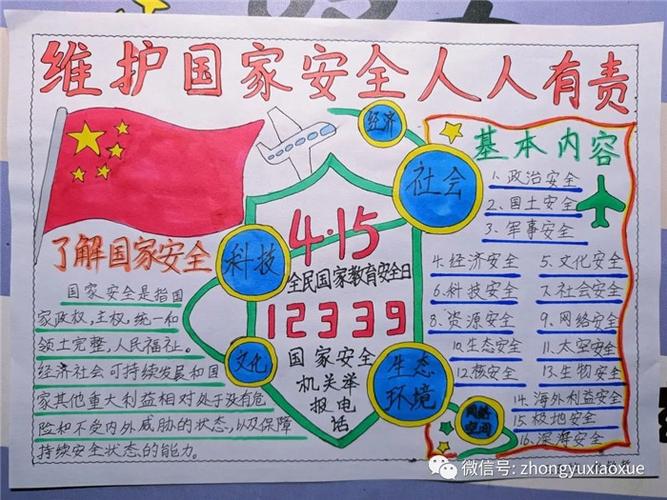 维护国家安全人人有责
了解国家安全
国家安全是指国
家政权,主权,统一和
领土完整,人民福祉。
经济社会可持续发展和国
家其他重大利益相对处于没有危
险和不受内外威胁的状态,以及保障
持续安全状态的能力。
经济
社会
科技
文化
生态
环境
4·15
全民国家教育安全日
12339
国家安全
机关举
报电
话
基本内容
1.政治安全
2.国土安全
3.军事安全
4.经济安全
5.文化安全
6.科技安全
7.社会安全
8.资源安全
9.网络安全
10.生态安全
11.太空安全
12.核安全
13.生物安全
14.海外利益安全
15.极地安全
16.深海安全
微信号: zhongyuxiaoxue